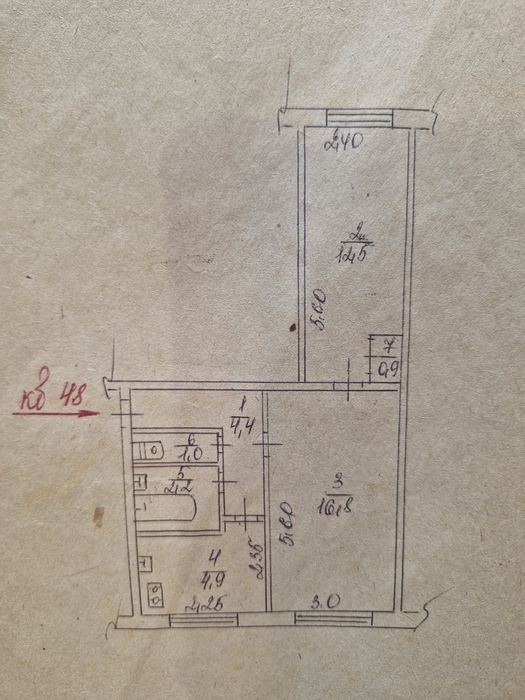 2,40
2
12,5
5,00
7
0,9
кв 48
1
4,4
6
1,0
5
2,2
3
16,8
5,60
2,35
4
4,9
2,25
3.0